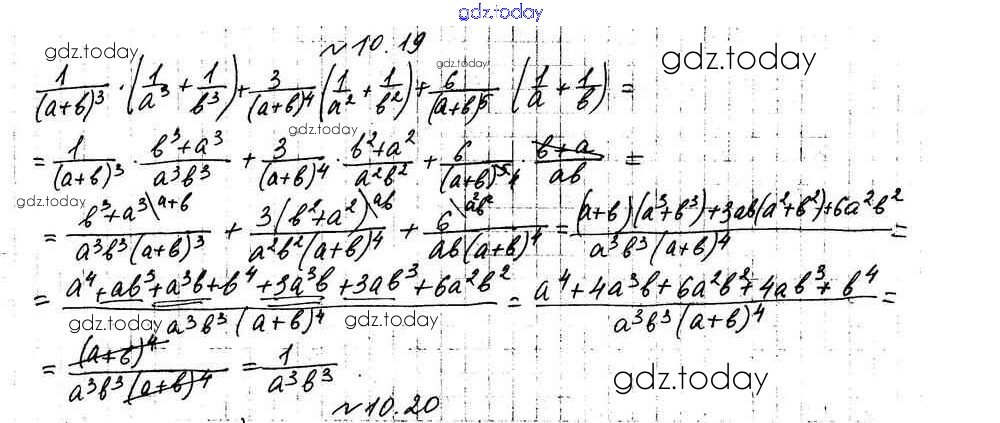 gdz.today
№10.19
gdz.today gdz.today gdz.today
1/(a+b)³ · (1/a³ + 1/b³) + 3/(a+b)⁴ (1/a² + 1/b²) + 6/(a+b)⁵ · (1/a + 1/b) =
gdz.today
= 1/(a+b)³ · (b³+a³)/(a³b³) + 3/(a+b)⁴ · (b²+a²)/(a²b²) + 6/(a+b)⁵ · (b+a)/(ab) =
gdz.today
= (b³+a³ \a+b)/(a³b³(a+b)³) + (3(b²+a²) \ab)/(a²b²(a+b)⁴) + (6 \a²b²)/(ab(a+b)⁴) = ((a+b)(a³+b³)+3ab(a²+b²)+6a²b²)/(a³b³(a+b)⁴) =
= (a⁴+ab³+a³b+b⁴+3a³b+3ab³+6a²b²)/(a³b³(a+b)⁴) = (a⁴+4a³b+6a²b²+4ab³+b⁴)/(a³b³(a+b)⁴) =
gdz.today gdz.today
= (a+b)⁴/(a³b³(a+b)⁴) = 1/(a³b³)
gdz.today
№10.20